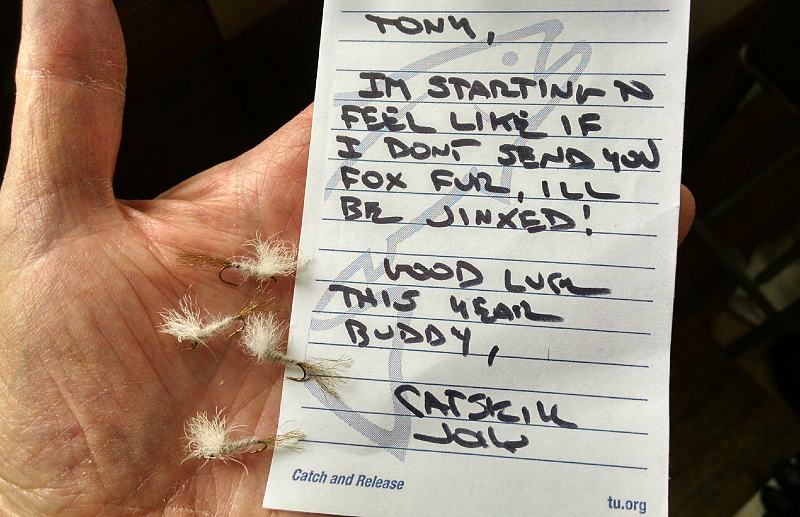 TONY,
IM STARTING TO
FEEL LIKE IF
I DONT SEND YOU
FOX FUR, ILL
BE JINXED!
GOOD LUCK
THIS YEAR
BUDDY,
CATSKILL
JOHN
Catch and Release
tu.org